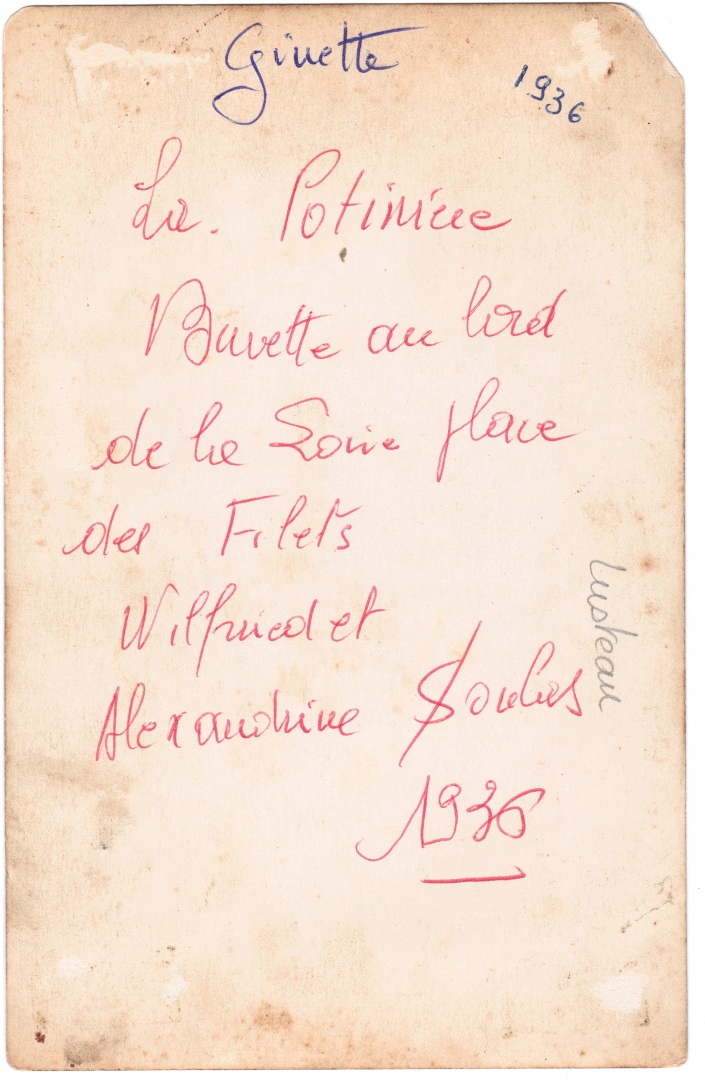 Ginette
1936
La. Potinière
Buvette au bord
de la Loire place
des Filets
Wilfried et
Alexandrine Soulas
1936
Lusteau